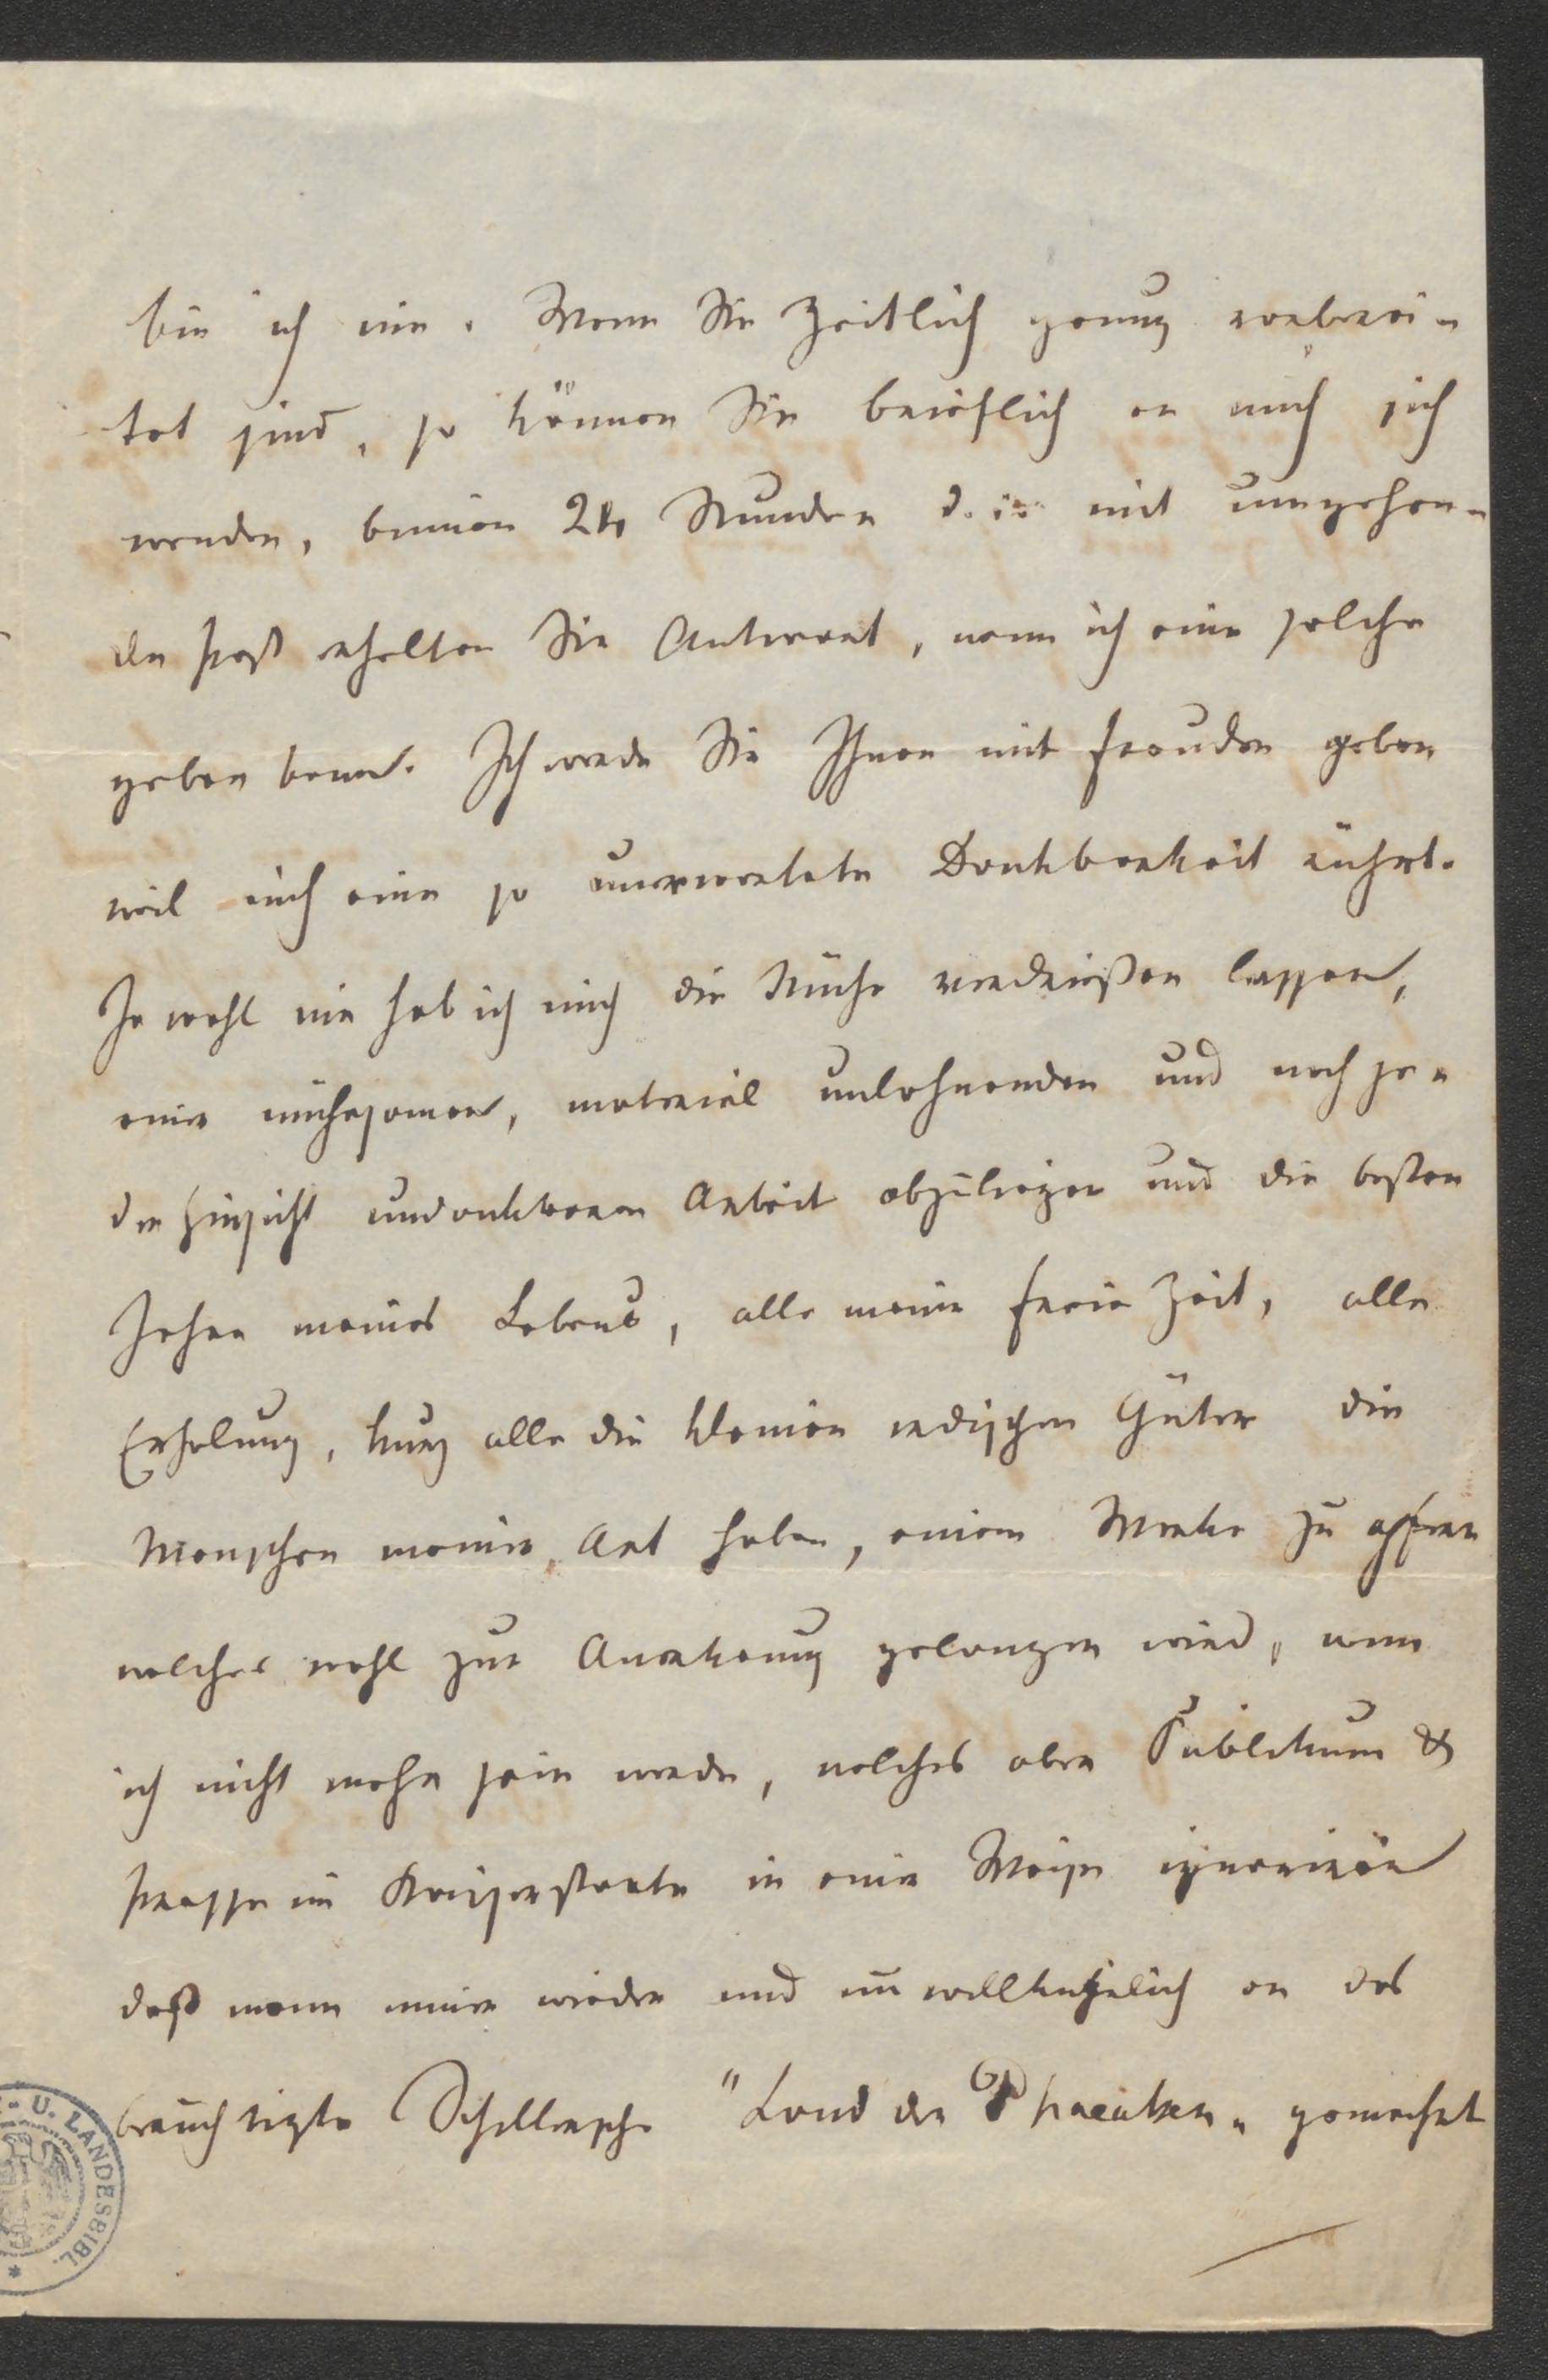 bin ich nie. Wenn Sie zeitlich genug vorberei-
tet sind, so können Sie brieflich an mich sich
wenden, binnen 24 Stunden d. i. mit umgehen-
der Post erhalten Sie Antwort, wenn ich eine solche
geben kann. Ich werde Sie Ihnen mit Freuden geben
weil mich eine so unerwartete Dankbarkeit rührt.
Ja wohl nie hab ich mich die Mühe verdrießen lassen,
einer mühsamen, materiel unlohnenden und nach je-
der Hinsicht undankbaren Arbeit obzuliegen und die besten
Jahre meines Lebens, alle meine freie Zeit, alle
Erholung, kurz alle die kleinen irdischen Güter die
Menschen meiner Art haben, einem Werke zu opfern
welches wohl zur Anerkennung gelangen wird, wenn
ich nicht mehr sein werde, welches aber Publikum &
Presse im Kaiserstaate in einer Weise ignoriren
daß mann immer wieder und unwillkührlich an das
berüchtigte Schillersche "Land der Phaeaken" gemahnt
U. LANDESBIBL.